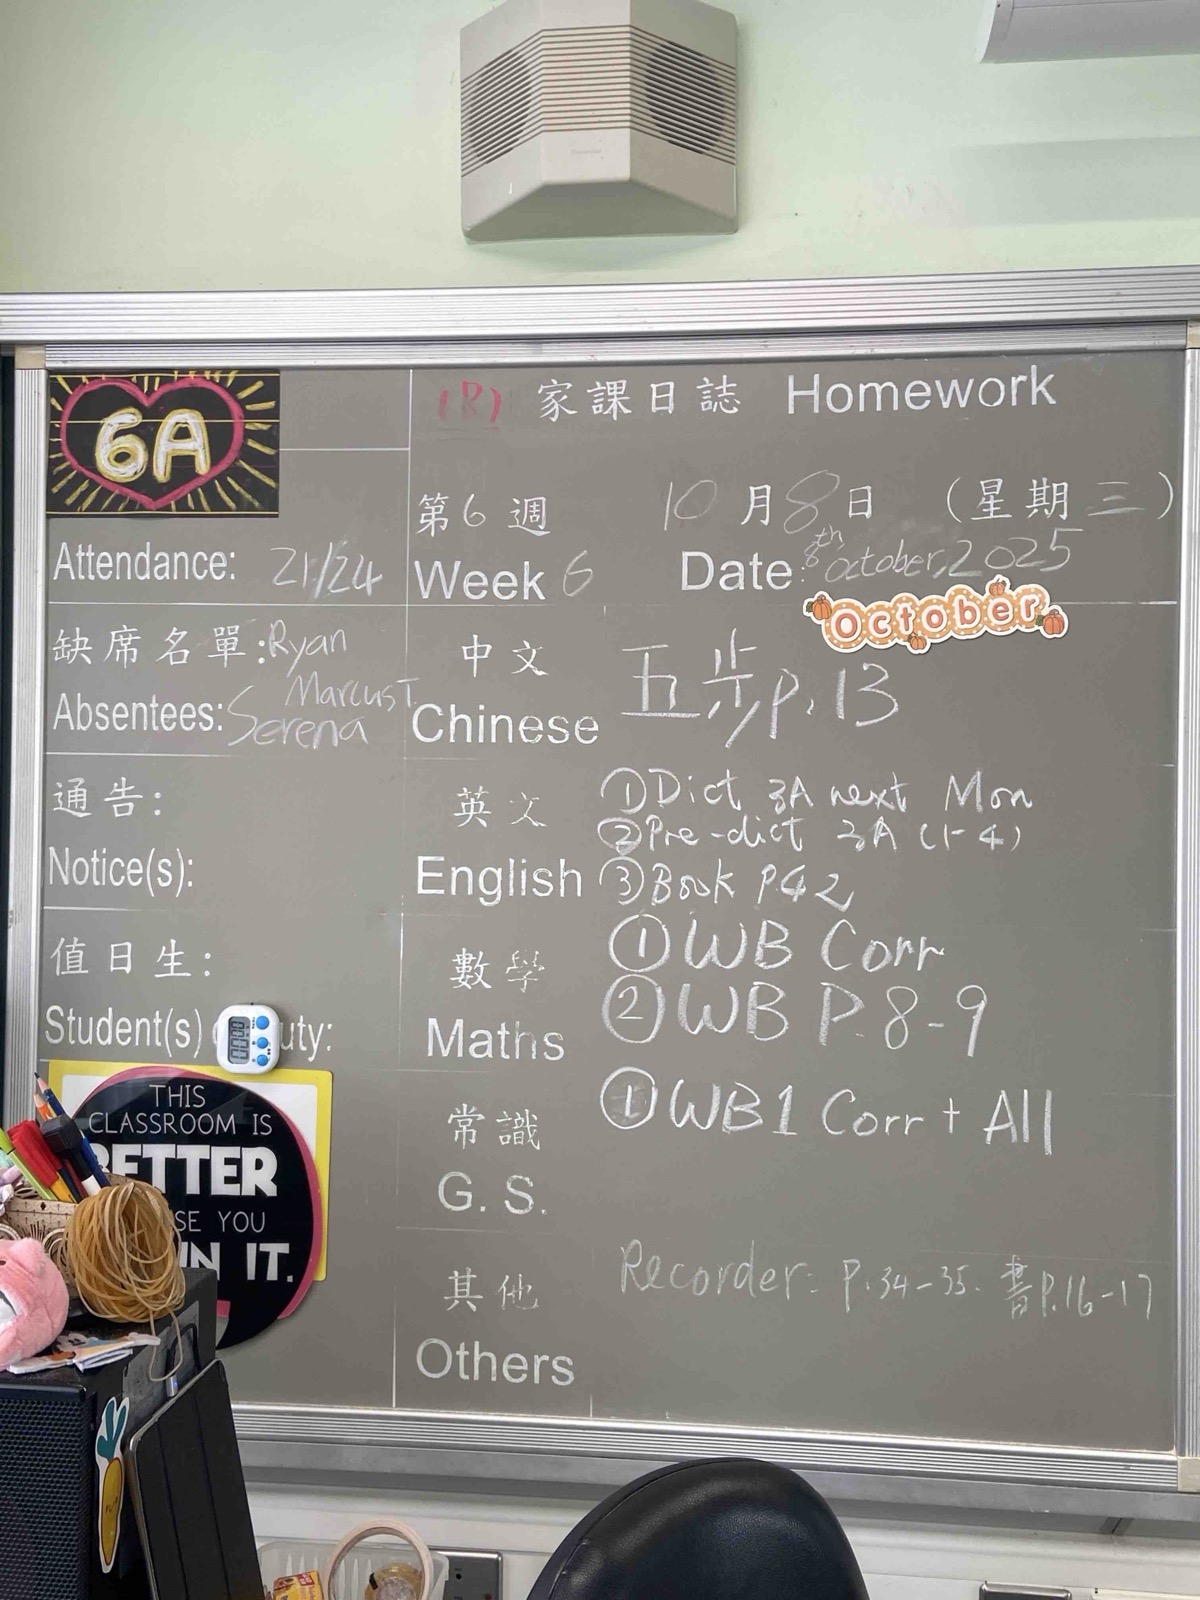 6A
(R) 家課日誌 Homework
第6週 10月8日 (星期三)
Attendance: 21/24
Week 6 Date: 8th October, 2025
October
缺席名單: Ryan
Marcus T.
Absentees: Serena
中文
Chinese
五步p.13
通告:
Notice(s):
英文
English
①Dict 3A next Mon
②Pre-dict 3A (1-4)
③Book P42
值日生:
Student(s) uty:
數學
Maths
①WB Corr
②WB P.8-9
常識
G. S.
①WB1 Corr + All
其他
Others
Recorder: p.34-35. 書p.16-17
THIS
CLASSROOM IS
BETTER
SE YOU
IN IT.